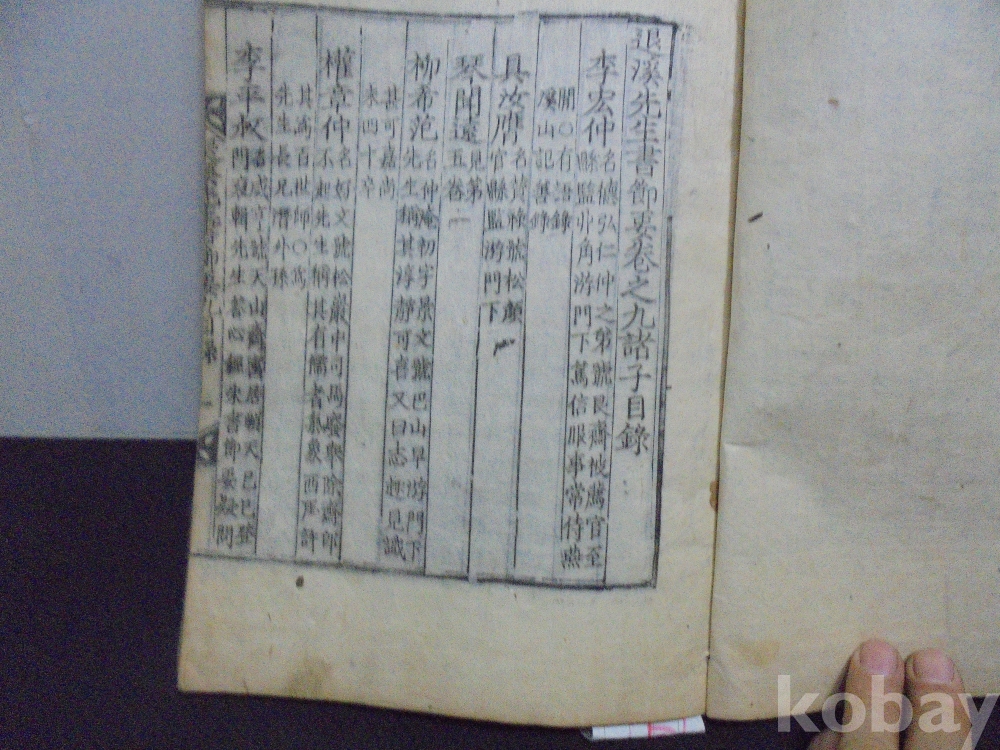 退溪先生書節要卷之九諸子目錄
李宏仲 名德弘仁仲之弟號艮齋被薦官至
縣監丱角游門下篤信服事常侍燕
閒○有語錄
溪山記善錄
具汝膺 名贊祿號松顔
官縣監游門下
琴聞遠 見第
五卷
柳希范 名仲淹初字景文號巴山早游門下
先生稱其淳靜可喜又曰志趣見識
甚可嘉尚
未四十卒
權章仲 名好文號松巖中司馬廢擧除齋郎
不起先生稱其有儒者氣象西厓許
其高百世師○寔
先生長兄潛外孫
李平叔 名咸亨號天山齋寓居順天己巳登
門裒輯先生書心經朱書節要疑問
kobay